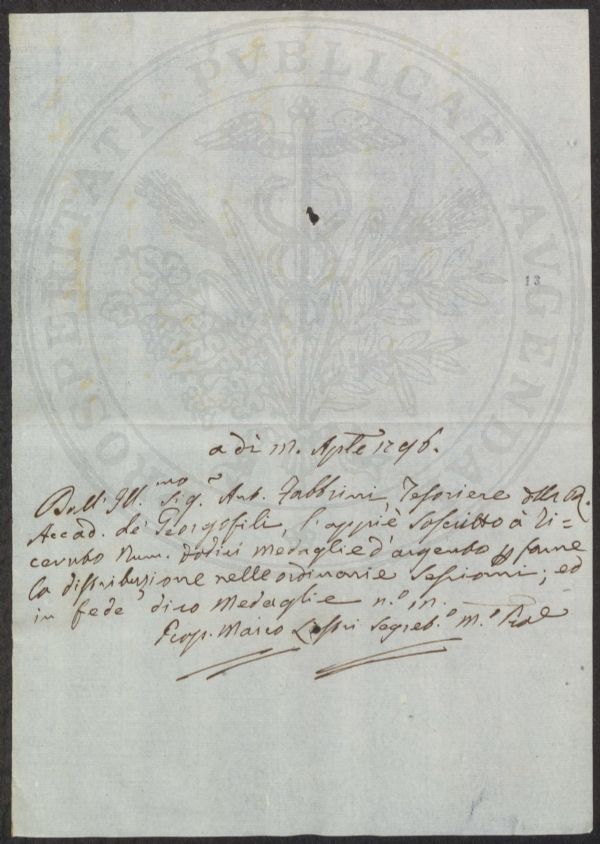 PROSPERITATI · PVBLICAE AVGENDAE
13
a dì Aple 1796.
Dall' Ill.mo Sig.r Ant. Fabbrini, Tesoriere della R.
Accad. de' Georgofili, l'appiè Soscritto à ri=
cevuto Num. dodici Medaglie d'argento p farne
la distribuzione nelle ordinarie Sessioni; ed
in fede dico Medaglie n.o
Marco Lastri Segret.o